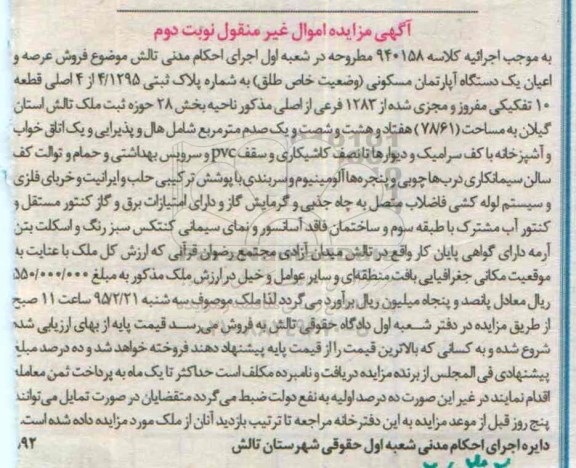 آگهی مزایده اموال غیر منقول نوبت دوم
به موجب اجرائیه کلاسه ۹۴۰۱۵۸ مطروحه در شعبه اول اجرای احکام مدنی تالش موضوع فروش عرصه و
اعیان یک دستگاه آپارتمان مسکونی (وضعیت خاص طلق) به شماره پلاک ثبتی ۴/۱۲۹۵ از ۴ اصلی قطعه
۱۰ تفکیکی مفروز و مجزی شده از ۱۲۸۳ فرعی از اصلی مذکور ناحیه بخش ۲۸ حوزه ثبت ملک تالش استان
گیلان به مساحت (۷۸/۶۱) هفتاد و هشت و شصت و یک صدم مترمربع شامل هال و پذیرایی و یک اتاق خواب
و آشپزخانه با کف سرامیک و دیوارها تا نصف کاشیکاری و سقف pvc و سرویس بهداشتی و حمام و توالت کف
سالن سیمانکاری درب‌ها چوبی و پنجره‌ها آلومینیوم و سربندی با پوشش ترکیبی حلب و ایرانیت و خرپای فلزی
و سیستم لوله کشی فاضلاب متصل به چاه جذبی و گرمایش گاز و دارای امتیازات برق و گاز کنتور مستقل و
کنتور آب مشترک با طبقه سوم و ساختمان فاقد آسانسور و نمای سیمانی کنتکس سبز رنگ و اسکلت بتن
آرمه دارای گواهی پایان کار واقع در تالش میدان آزادی مجتمع رضوان قرآنی که ارزش کل ملک با عنایت به
موقعیت مکانی جغرافیایی بافت منطقه‌ای و سایر عوامل و خیل در ارزش ملک مذکور به مبلغ ۵۵۰/۰۰۰/۰۰۰
ریال معادل پانصد و پنجاه میلیون ریال برآورد می‌گردد لذا ملک موصوف سه شنبه ۹۵/۲/۲۱ ساعت ۱۱ صبح
از طریق مزایده در دفتر شعبه اول دادگاه حقوقی تالش به فروش می‌رسد قیمت پایه از بهای ارزیابی شده
شروع شده و به کسانی که بالاترین قیمت را از قیمت پایه پیشنهاد دهند فروخته خواهد شد و ده درصد مبلغ
پیشنهادی فی المجلس از برنده مزایده دریافت و نامبرده مکلف است حداکثر تا یک ماه به پرداخت ثمن معامله
اقدام نمایند در غیر این صورت ده درصد اولیه به نفع دولت ضبط می‌گردد متقاضیان در صورت تمایل می‌توانند
پنج روز قبل از موعد مزایده به این دفترخانه مراجعه تا ترتیب بازدید آنان از ملک مورد مزایده داده شده است.
دایره اجرای احکام مدنی شعبه اول حقوقی شهرستان تالش
۹۲